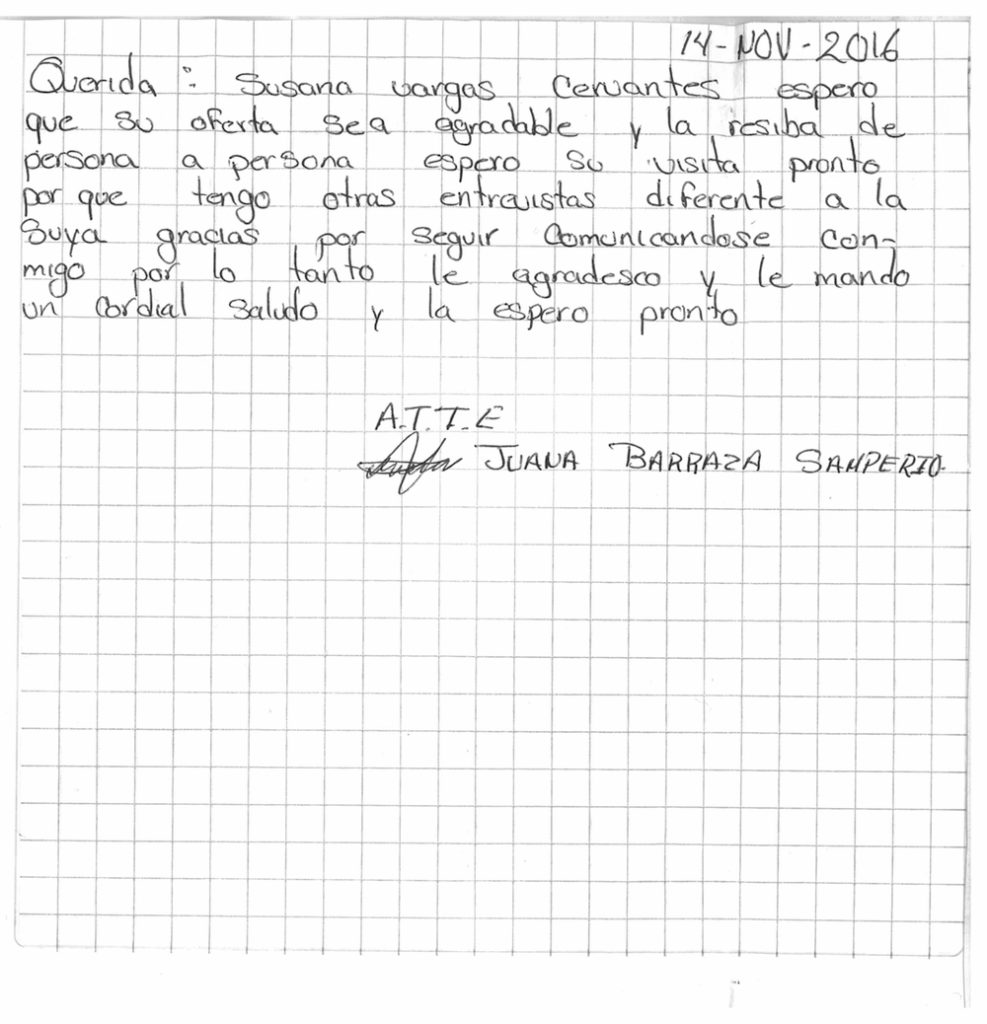 14-NOV-2016
Querida: Susana vargas Cervantes espero
que su oferta sea agradable y la resiba de
persona a persona espero su visita pronto
por que tengo otras entrevistas diferente a la
suya gracias por seguir comunicandose con-
migo por lo tanto le agradesco y le mando
un cordial saludo y la espero pronto
A.T.T.E
JUANA BARRAZA SAMPERIO.